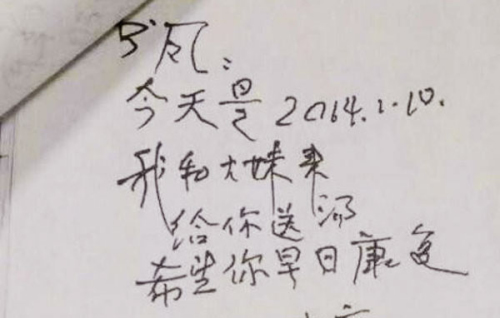 凤:
今天是2014.1.10.
我和大妹来
给你送汤
希望你早日康复